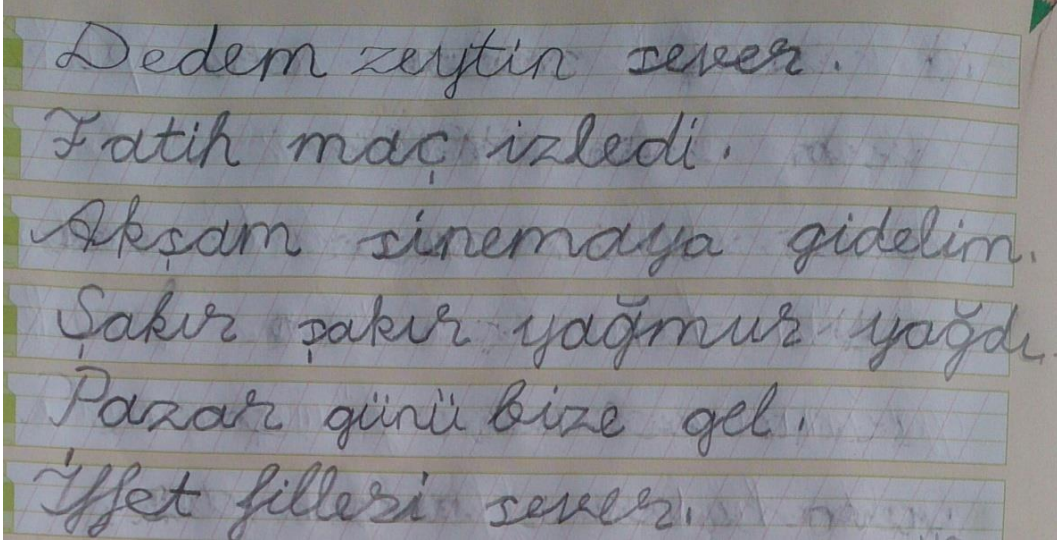 Dedem zeytin sever.
Fatih maç izledi.
Akşam sinemaya gidelim.
Şakır şakır yağmur yağdı.
Pazar günü bize gel.
İffet filleri sever.